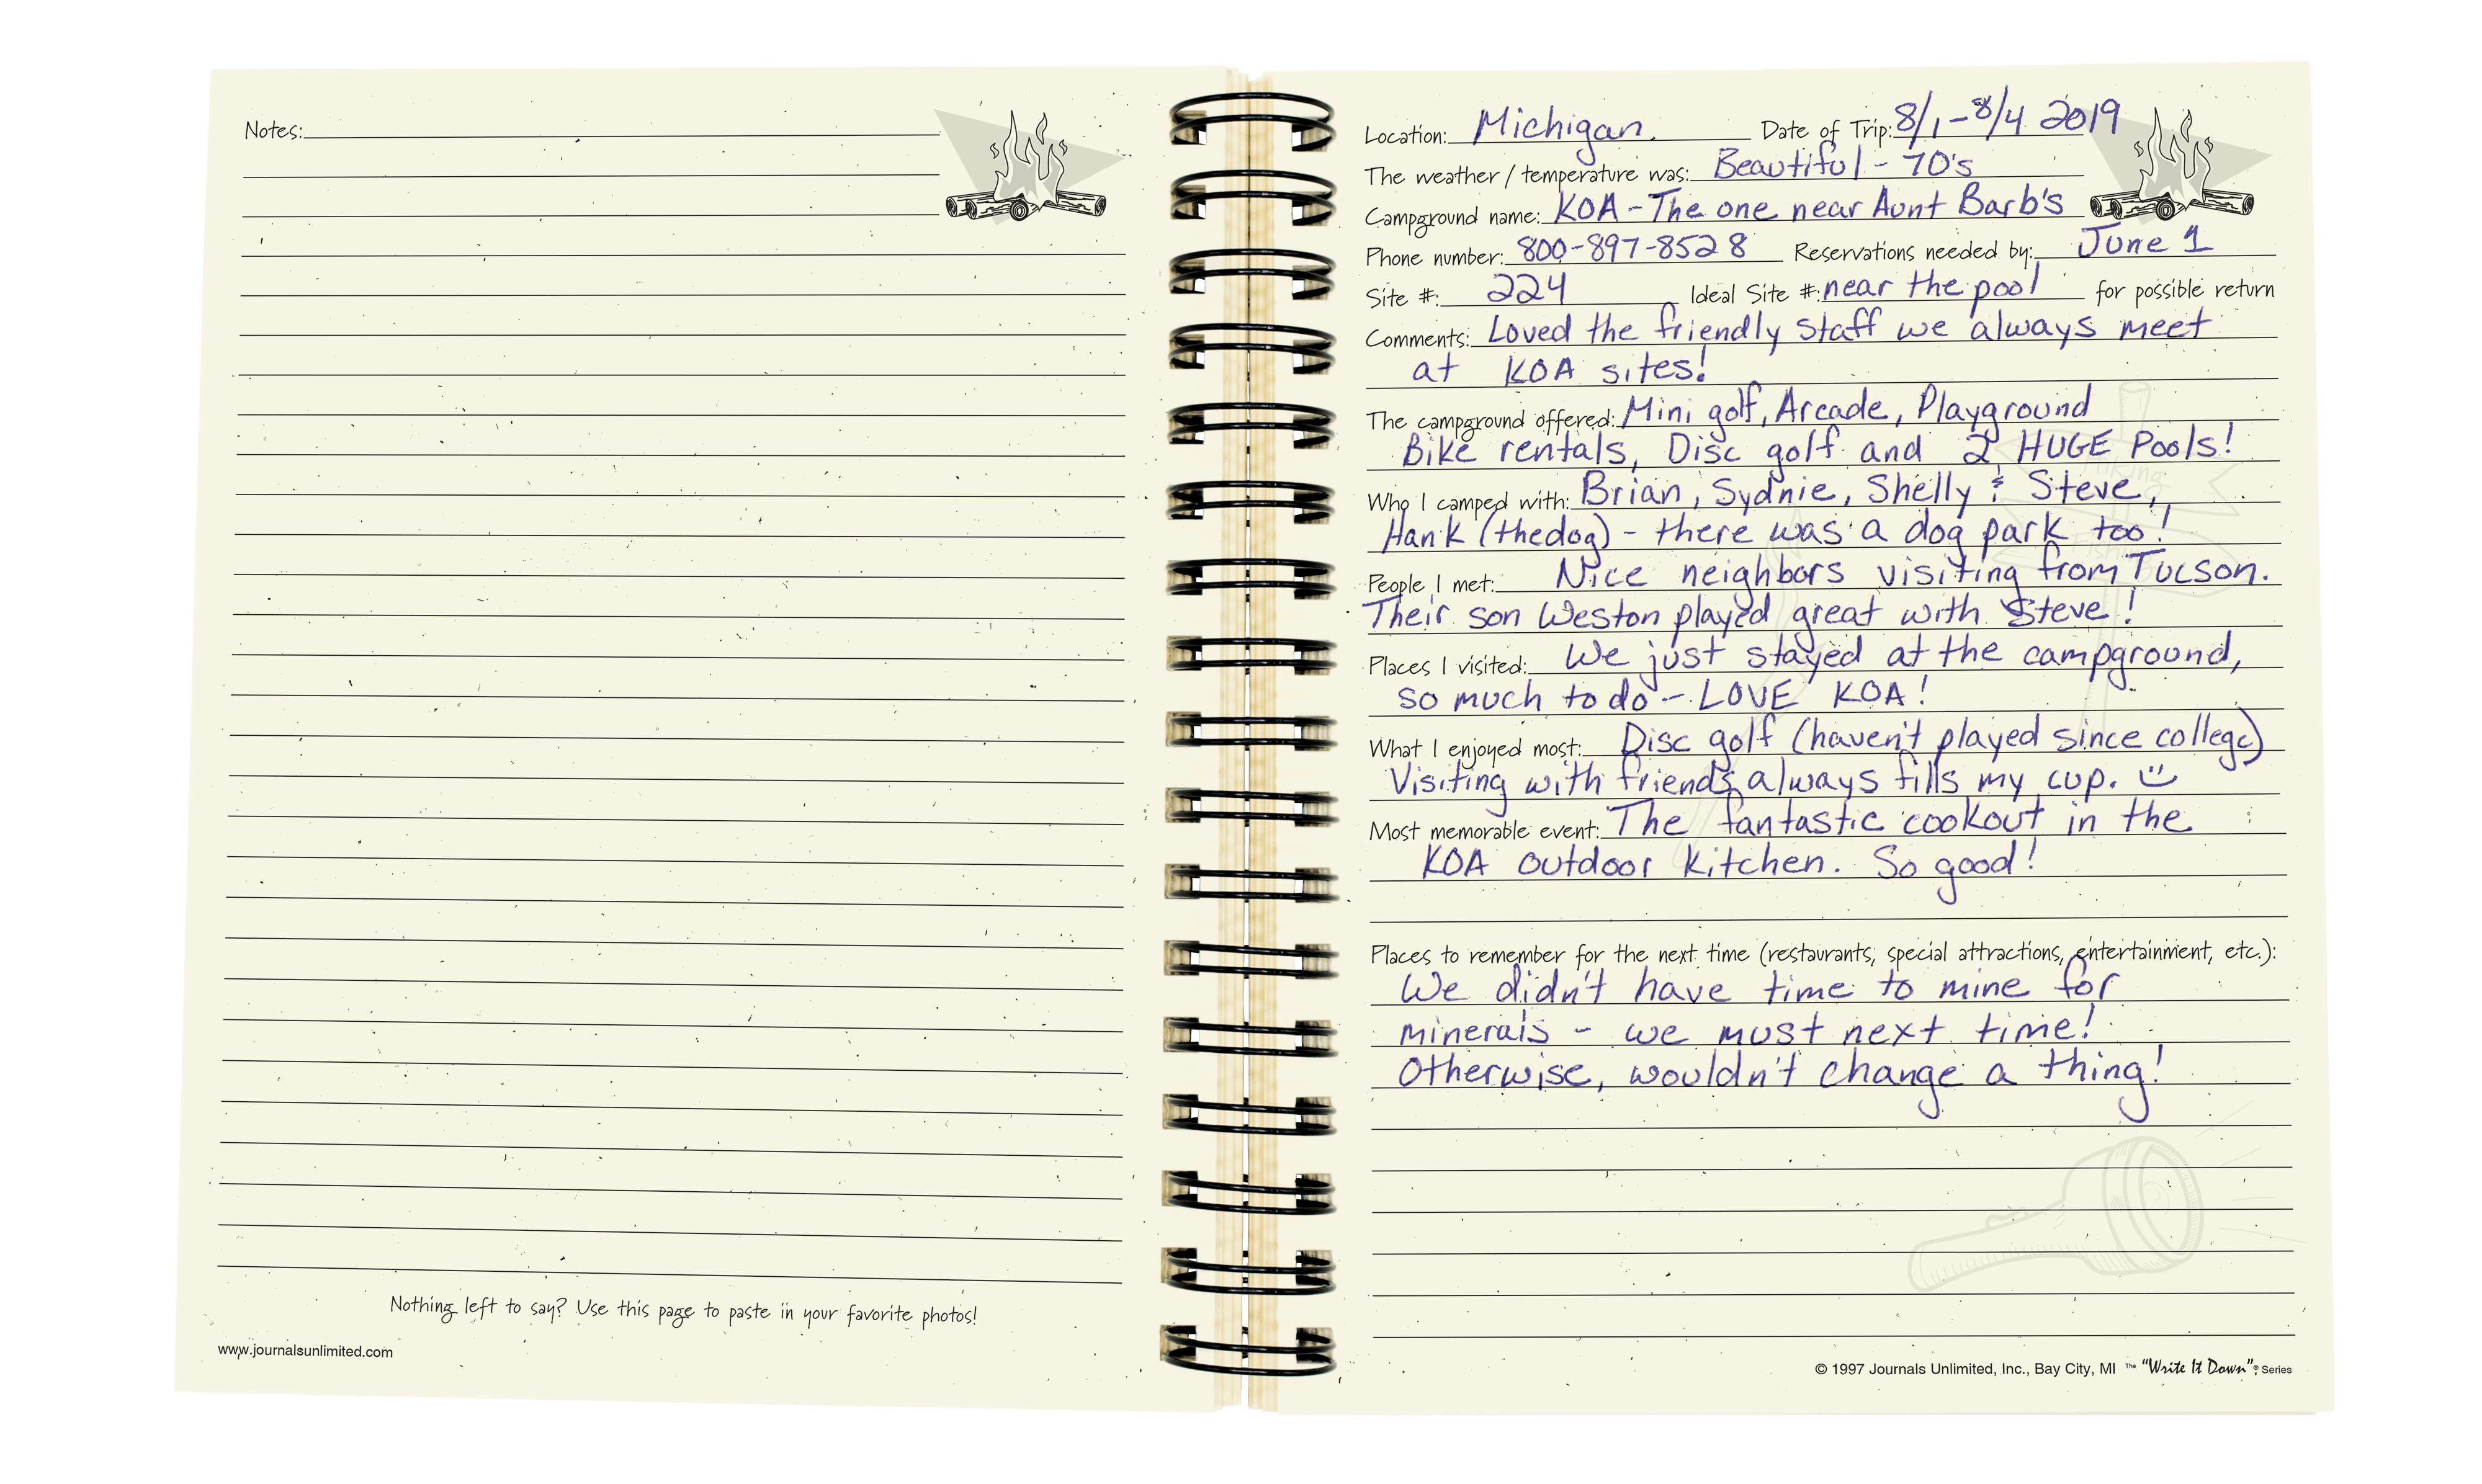 Notes:
Nothing left to say? Use this page to paste in your favorite photos!
www.journalsunlimited.com
Location: Michigan. Date of Trip: 8/1-8/4 2019
The weather / temperature was: Beautiful - 70's
Campground name: KOA - The one near Aunt Barb's
Phone number: 800-897-8528 Reservations needed by: June 1
Site #: 224 Ideal Site #: near the pool for possible return
Comments: Loved the friendly staff we always meet
at KOA sites!
The campground offered: Mini golf, Arcade, Playground
Bike rentals, Disc golf and 2 HUGE Pools!
Hiking
Who I camped with: Brian, Sydnie, Shelly & Steve,
Hank (the dog) - there was a dog park too!
Fishing
People I met: Nice neighbors visiting from Tucson.
Their son Weston played great with Steve!
Places I visited: We just stayed at the campground,
so much to do - LOVE KOA!
What I enjoyed most: Disc golf (haven't played since college)
Visiting with friends always fills my cup. :)
Most memorable event: The fantastic cookout in the
KOA outdoor kitchen. So good!
Places to remember for the next time (restaurants, special attractions, entertainment, etc.):
We didn't have time to mine for
minerals - we must next time!
Otherwise, wouldn't change a thing!
© 1997 Journals Unlimited, Inc., Bay City, MI The "Write It Down"® Series